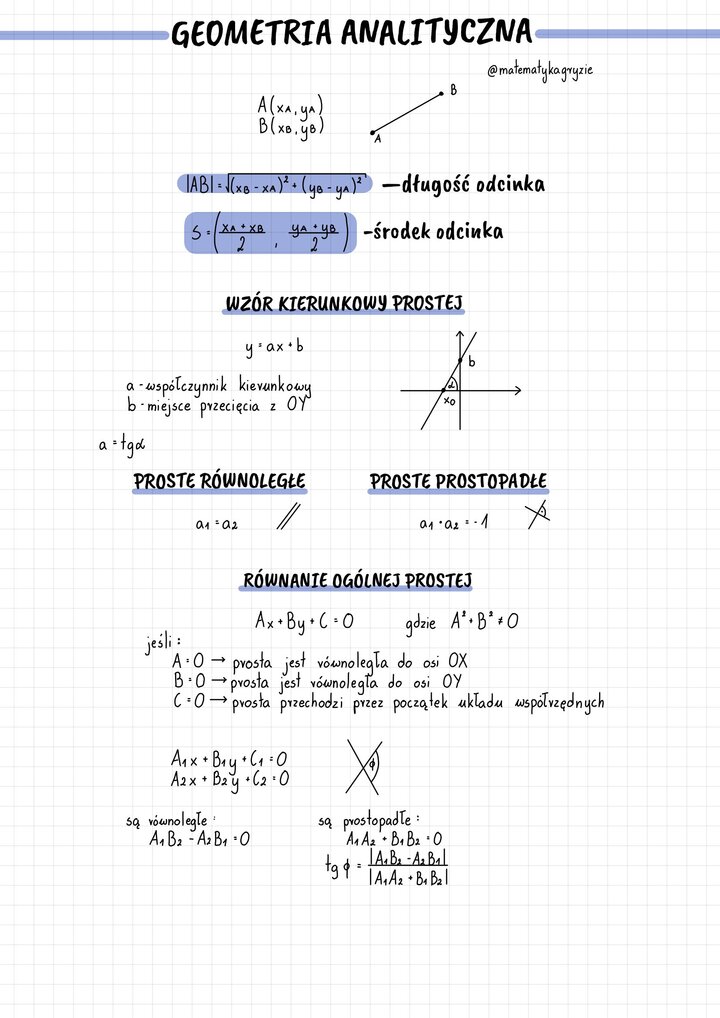 GEOMETRIA ANALITYCZNA
@matematykagryzie
A(xA, yA)
B(xB, yB)
B
A
|AB| = √(xB - xA)² + (yB - yA)² — długość odcinka
S = (xA + xB / 2 , yA + yB / 2) - środek odcinka
WZÓR KIERUNKOWY PROSTEJ
y = ax + b
b
α
x0
a - współczynnik kierunkowy
b - miejsce przecięcia z OY
a = tgα
PROSTE RÓWNOLEGŁE
a1 = a2
PROSTE PROSTOPADŁE
a1 · a2 = -1
RÓWNANIE OGÓLNEJ PROSTEJ
Ax + By + C = 0 gdzie A² + B² ≠ 0
jeśli :
A = 0 → prosta jest równoległa do osi OX
B = 0 → prosta jest równoległa do osi OY
C = 0 → prosta przechodzi przez początek układu współrzędnych
A1x + B1y + C1 = 0
A2x + B2y + C2 = 0
ϕ
są równoległe :
A1B2 - A2B1 = 0
są prostopadłe :
A1A2 + B1B2 = 0
tg ϕ = |A1B2 - A2B1| / |A1A2 + B1B2|